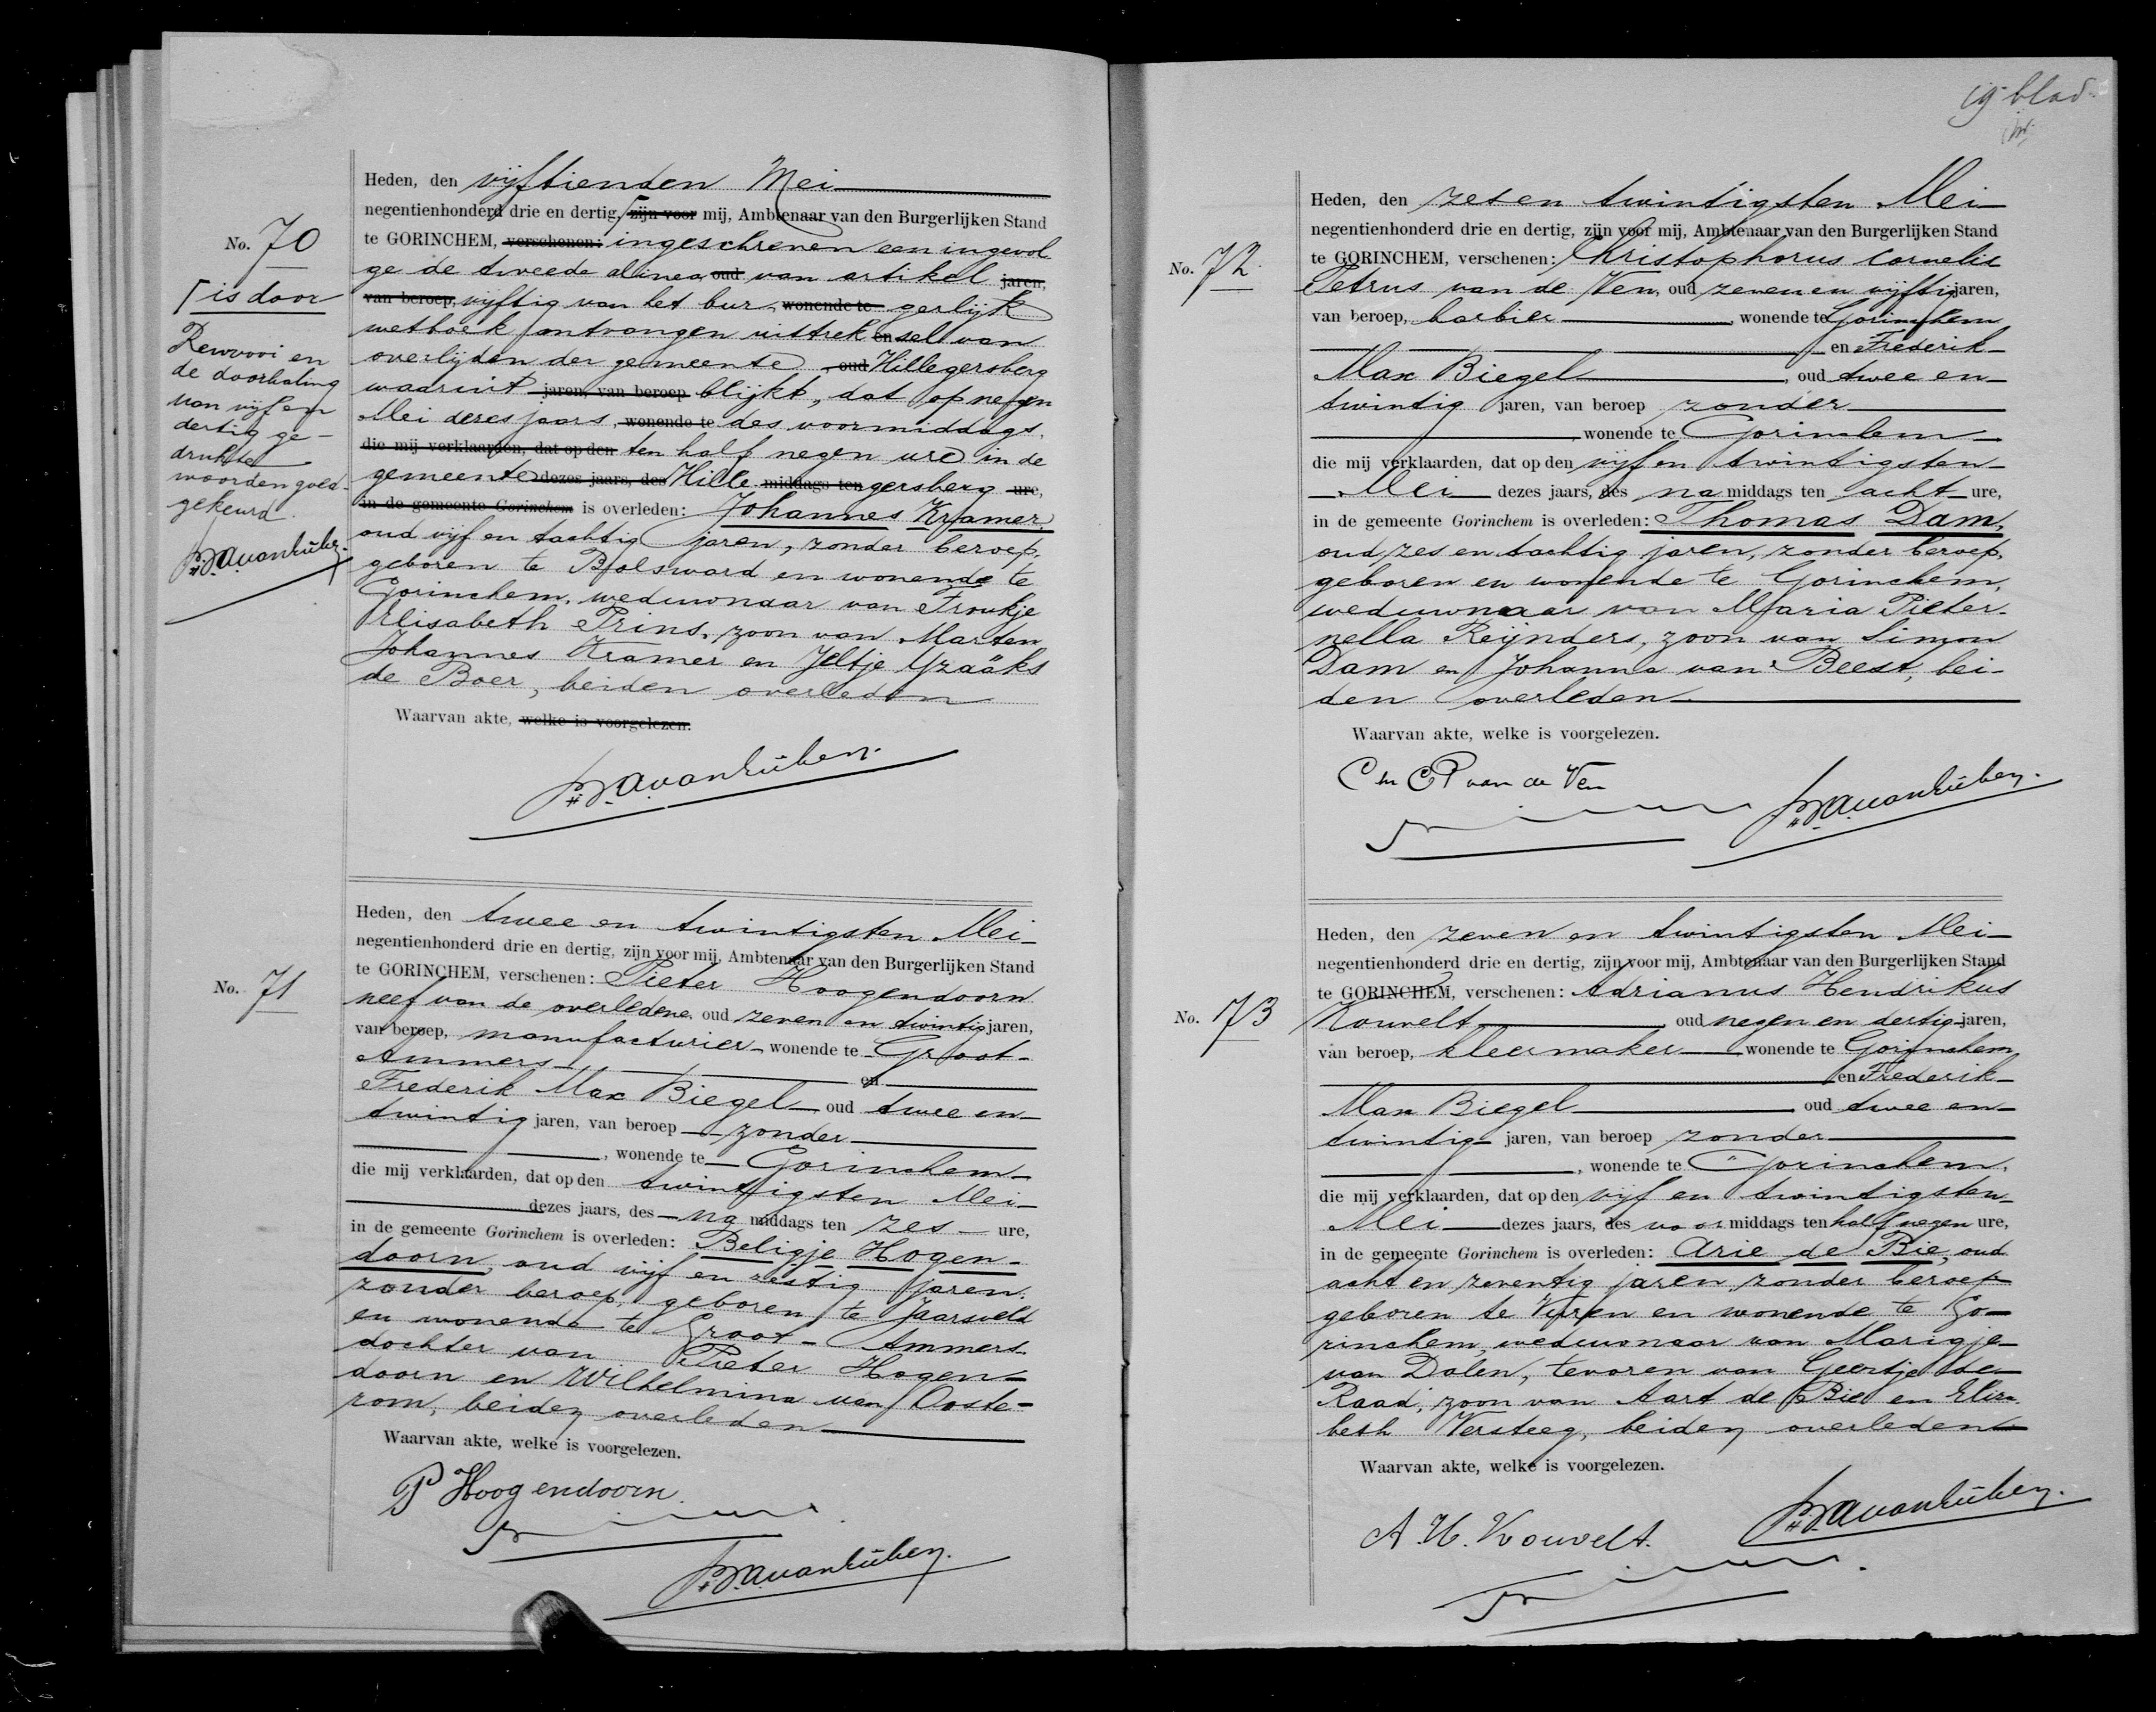 No. 70
⌈ is door
Rewvooi en
de doorhaling
van vijf en
dertig ge-
drukte
woorden goed-
gekeurd.
Heden, den vijftienden Mei
negentienhonderd drie en dertig, ⌈ zijn voor mij, Ambtenaar van den Burgerlijken Stand
te GORINCHEM, verschenen: ingeschreven een ingevol-
ge de tweede alinea oud van artikel jaren,
van beroep, vijftig van het bur- wonende te gerlijk
wetboek ontvangen uittrek en sel van
overlijden der gemeente oud Hillegersberg
waaruit jaren, van beroep blijkt, dat op negen
Mei dezes jaars, wonende te des voormiddags,
die mij verklaarden, dat op den ten half negen ure in de
gemeente dezes jaars, des Hille- middags ten gersberg ure,
in de gemeente Gorinchem is overleden: Johannes Kramer,
oud vijf en tachtig jaren, zonder beroep,
geboren te Bolsward en wonende te
Gorinchem, weduwnaar van Froukje
Elisabeth Prins, zoon van Marten
Johannes Kramer en Jeltje Yzaäks
de Boer, beiden overleden
Waarvan akte, welke is voorgelezen.
No. 71
Heden, den twee en twintigsten Mei
negentienhonderd drie en dertig, zijn voor mij, Ambtenaar van den Burgerlijken Stand
te GORINCHEM, verschenen: Pieter Hoogendoorn
neef van de overledene, oud zeven en twintig jaren,
van beroep, manufacturier wonende te Groot-
Ammers en
Frederik Max Biegel oud twee en
twintig jaren, van beroep zonder
, wonende te Gorinchem
die mij verklaarden, dat op den twintigsten Mei
dezes jaars, des na middags ten zes ure,
in de gemeente Gorinchem is overleden: Beligje Hogen-
doorn, oud vijf en zestig jaren,
zonder beroep, geboren te Jaarsveld
en wonende te Groot-Ammers,
dochter van Pieter Hogen-
doorn en Wilhelmina van Ooste-
rom, beiden overleden
Waarvan akte, welke is voorgelezen.
P Hoogendoorn.
19e blad
No. 72
Heden, den zes en twintigsten Mei
negentienhonderd drie en dertig, zijn voor mij, Ambtenaar van den Burgerlijken Stand
te GORINCHEM, verschenen: Christophorus Cornelis
Petrus van de Ven, oud zeven en vijftig jaren,
van beroep, barbier, wonende te Gorinchem
en Frederik
Max Biegel, oud twee en
twintig jaren, van beroep zonder
, wonende te Gorinchem
die mij verklaarden, dat op den vijf en twintigsten
Mei dezes jaars, des na middags ten acht ure,
in de gemeente Gorinchem is overleden: Thomas Dam,
oud zes en tachtig jaren, zonder beroep,
geboren en wonende te Gorinchem,
weduwnaar van Maria Pieter-
nella Reijnders, zoon van Simon
Dam en Johanna van Beest, bei-
den overleden
Waarvan akte, welke is voorgelezen.
van de Ven
No. 73
Heden, den zeven en twintigsten Mei
negentienhonderd drie en dertig, zijn voor mij, Ambtenaar van den Burgerlijken Stand
te GORINCHEM, verschenen: Adrianus Hendrikus
Kouvelt oud negen en dertig jaren,
van beroep, kleermaker wonende te Gorinchem
en Frederik
Max Biegel oud twee en
twintig jaren, van beroep zonder
, wonende te Gorinchem,
die mij verklaarden, dat op den vijf en twintigsten
Mei dezes jaars, des voor middags ten half negen ure,
in de gemeente Gorinchem is overleden: Arie de Bie, oud
acht en zeventig jaren, zonder beroep
geboren te Vuren en wonende te Go-
rinchem, weduwnaar van Marigje
van Dalen, tevoren van Geertje de
Raad, zoon van Aart de Bie en Eliza-
beth Versteeg, beiden overleden
Waarvan akte, welke is voorgelezen.
A. H. Kouvelt.